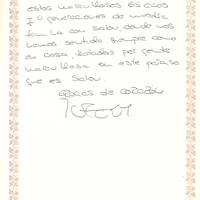 estos maravillosos 65 años
y 4 generaciones de nuestra
familia con Salou, donde nos
hemos sentido siempre como
en casa tratados por gente
maravillosa en este paraíso
que es Salou
GRACIAS DE CORAZÓN